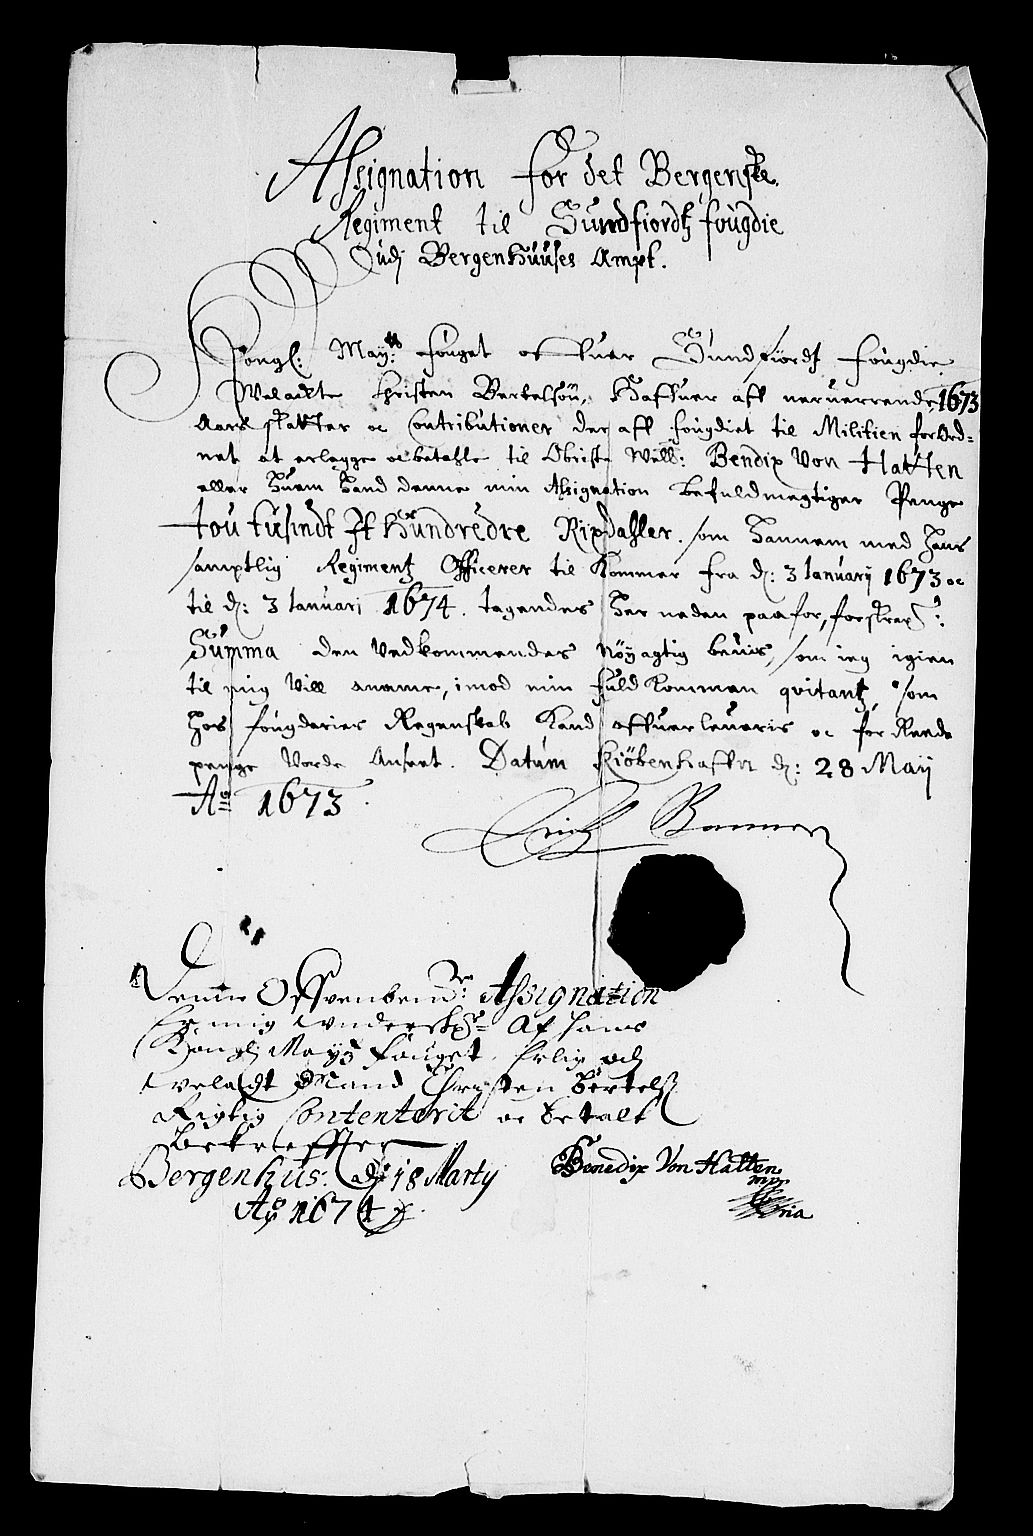 Assignation for det Bergenske
Regiment til Sundfiordtz fougdie
udj Bergenhuuses Ampt.
Kongl: May:ts fouget offuer Sundfiordtz fougdie
Welacte Christen Bertelsøn, Haffuer aff neruerrende 1673
Aars skatter oc Contributioner der aff fougdiet til Militien forord-
net at erlegge oc betahle til Obriste Well: Bendix Von Hatten
eller huem hand denne min Assignation befuldmegtiger Penge
tou tusindt It hundredre Rixdahler. som hannem med hans
samptlig Regimentz Officerer til kommer fra d: 3 January 1673 oc
til d: 3 Januari 1674. tagendes her neden paa for, forskref:ne
Summa den vedkommendes nøyagtig beuis, som ieg igien
til mig will aname, imod min fuldkommen qvitantz, som
hos fougderies Regenskab kand offuerleueris oc for Rede
penge vorde Anseet. Datum Kiöbenhaffn d: 28 May
Ao 1673.
Erich Banner
Denne Offvenbend:te Assignation
er mig underskr: Af hans
Kongl: Mayts fouget, Erlig och
velacht Mand Christen Bertels:
Rigtig Contenterit oc betalt
Bekreffter
Bergenhus: d: 18 Marty
Ao 1674
Benedix Von Hatten
mpp
ria